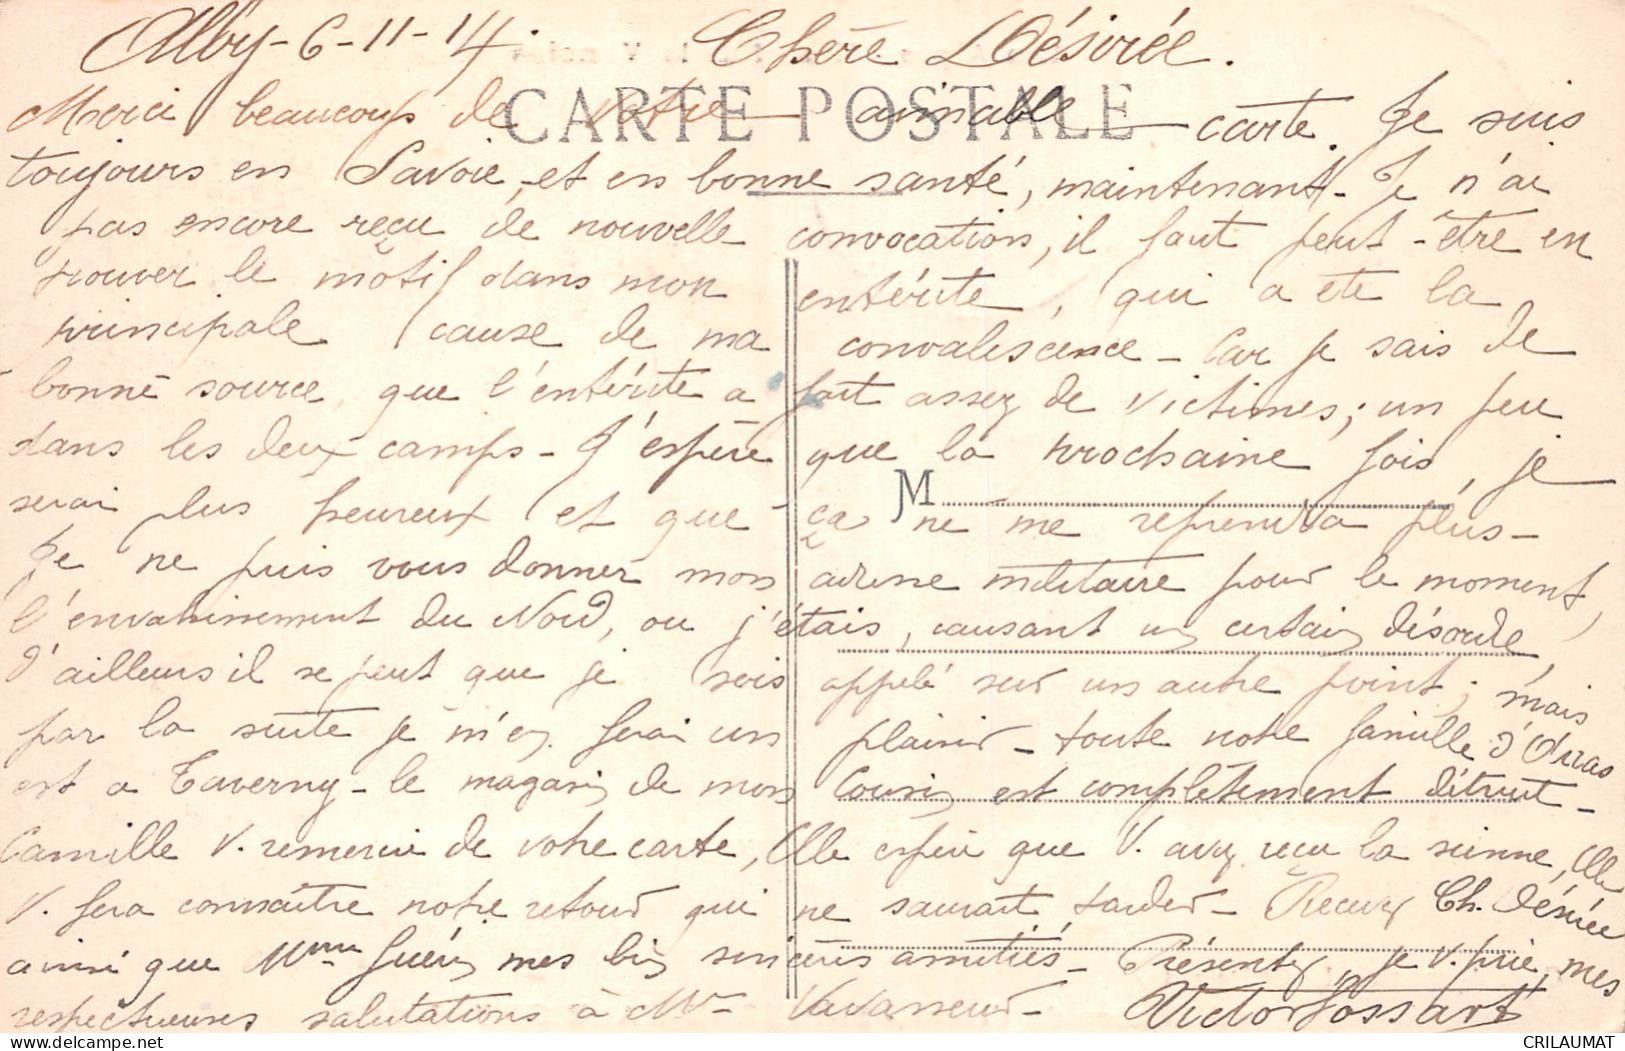 Alby-6-11-14. Chère Désirée.
CARTE POSTALE
Merci beaucoup de votre aimable carte. Je suis
toujours en Savoie, et en bonne santé, maintenant. Je n'ai
pas encore reçu de nouvelle convocation, il faut peut-être en
trouver le motif dans mon entérite, qui a été la
principale cause de ma convalescence - Car je sais de
bonne source, que l'entérite a fait assez de victimes; un peu
dans les deux camps - J'espère que la prochaine fois, je
serai plus heureux et que ça ne me reprendra plus -
M
Je ne puis vous donner mon adresse militaire pour le moment,
l'envahissement du Nord, ou j'étais, causant un certain désordre
d'ailleurs il se peut que je sois appelé sur un autre point; mais
par la suite je m'en ferai un plaisir - toute notre famille d'Arras
est a Taverny - le magasin de mon Cousin est complètement détruit -
Camille V. remercie de votre carte, Elle espère que V. avez reçu la sienne, Elle
V. fera connaître notre retour qui ne saurait tarder - Recevez Ch. Désirée
ainsi que Mme Guérin mes bien sincères amitiés - Présentez, je V. prie, mes
respectueuses salutations à Mr Vavasseur - Victor Fossart
CRILAUMAT